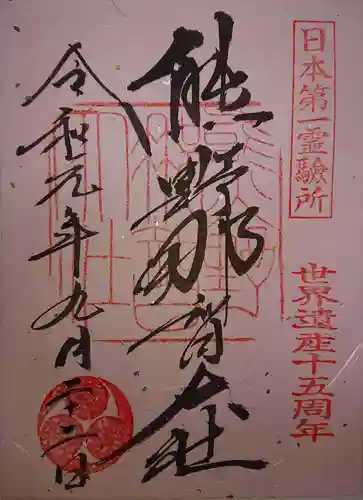 日本第一霊驗所
世界遺産十五周年
熊野那智大社
令和元年九月二十二日